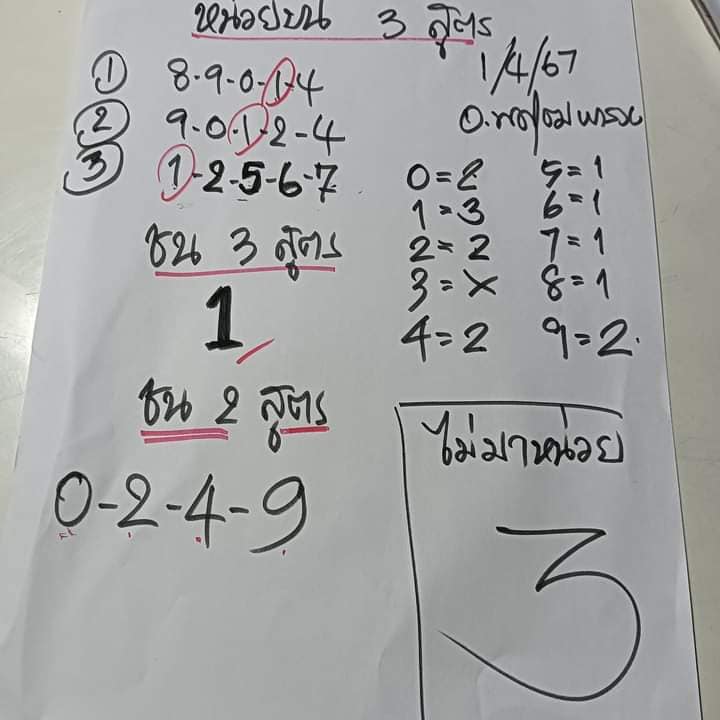 หน่วยบน 3 สูตร
1/4/67
① 8-9-0-1-4
② 9-0-1-2-4
③ 1-2-5-6-7
0=2 5=1
1=3 6=1
2=2 7=1
3=x 8=1
4=2 9=2
ชน 3 สูตร
1
ชน 2 สูตร
0-2-4-9
ไม่มาหน่วย
3